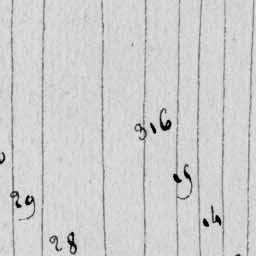 316
15
14
29
28